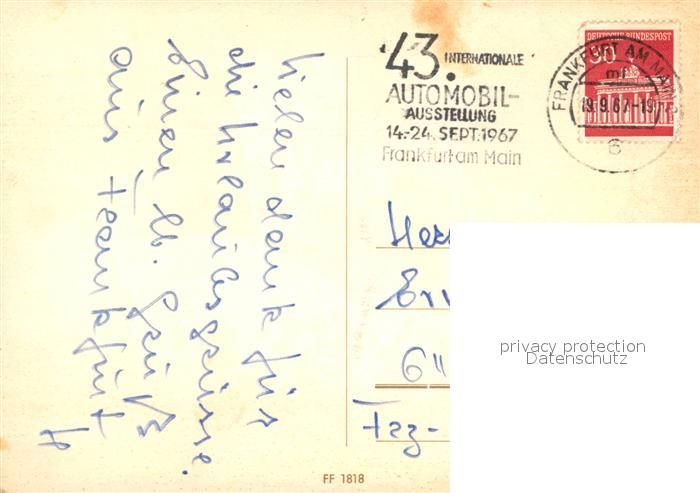 Vielen dank für
die Urlaubsgrüsse.
Einen lb. Gruß
aus Frankfurt
43. INTERNATIONALE
AUTOMOBIL-
AUSSTELLUNG
14.-24. SEPT. 1967
Frankfurt am Main
DEUTSCHE BUNDESPOST
30
FRANKFURT AM MAIN 2
19.9.67-19
6
Her
privacy protection
Datenschutz
FF 1818